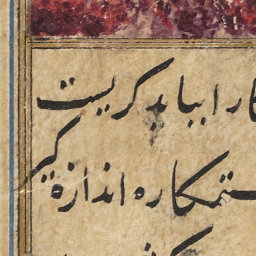 کار ابباید کریست
ستمکاره اندازه کیر